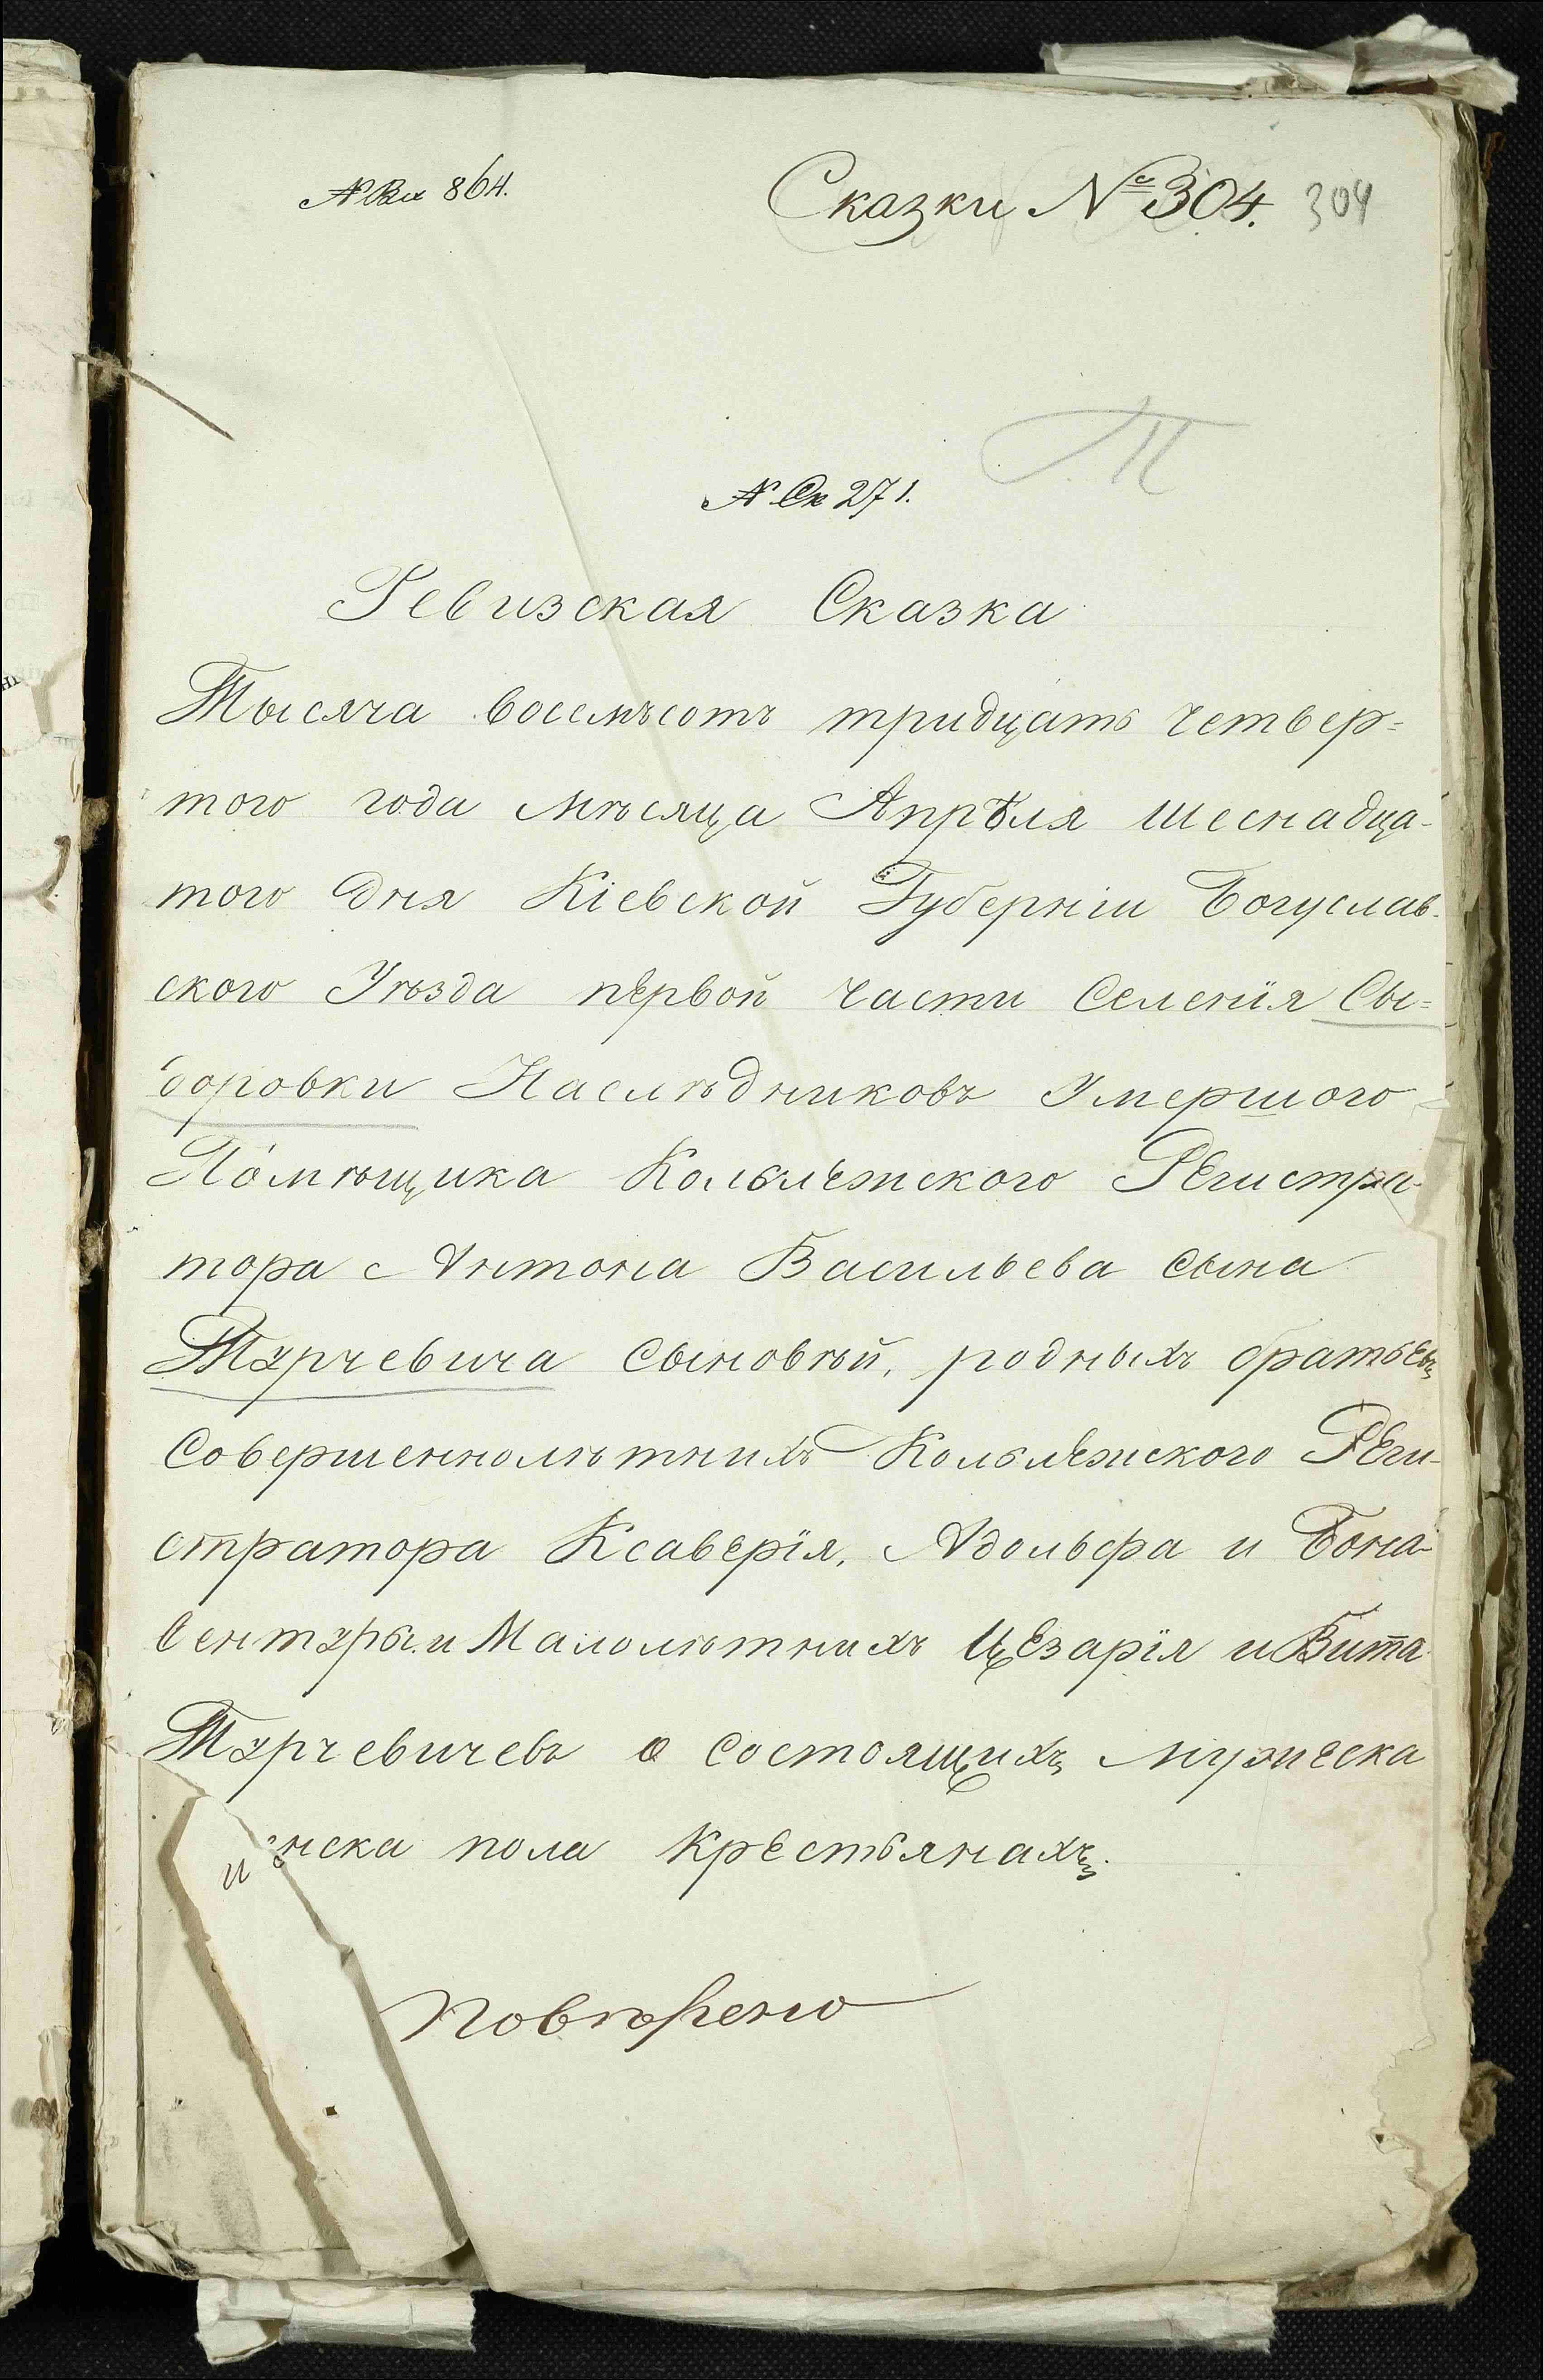 № Вх 864.
Сказки № 304. 304
Т
№ Ск 271.
Ревизская Сказка
Тысяча восемъсотъ тридцать четвер=
того года мѣсяца Апрѣля шеснадца-
того дня Кіевской Губерніи Богуслав-
ского Уѣзда первой части Селенія Сы=
доровки Наслѣдниковъ Умершого
Помѣщика Кольлежского Регистра-
тора Антона Васильева сына
Турчевича сыновѣй, родныхъ братьевъ
Совершеннолѣтнихъ Кольлежского Реги-
стратора Ксаверія, Адольфа и Бона-
вентуры и Малолѣтнихъ Цезарія и Вита
Турчевичевъ о состоящихъ мужеска
и нска пола крестьянахъ.
Повѣрено